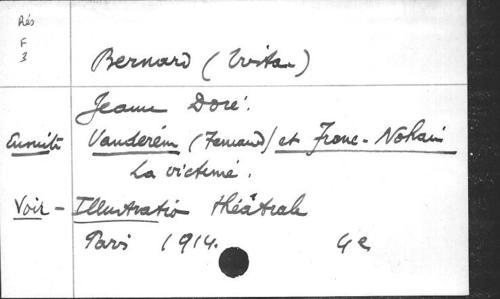 Rés
F
3
Bernard (Tristan)
Jeanne Doré.
Ensuite Vanderem (Fernand) et Franc-Nohain
La victime.
Voir - Illustration théâtrale
Paris 1914. 4e